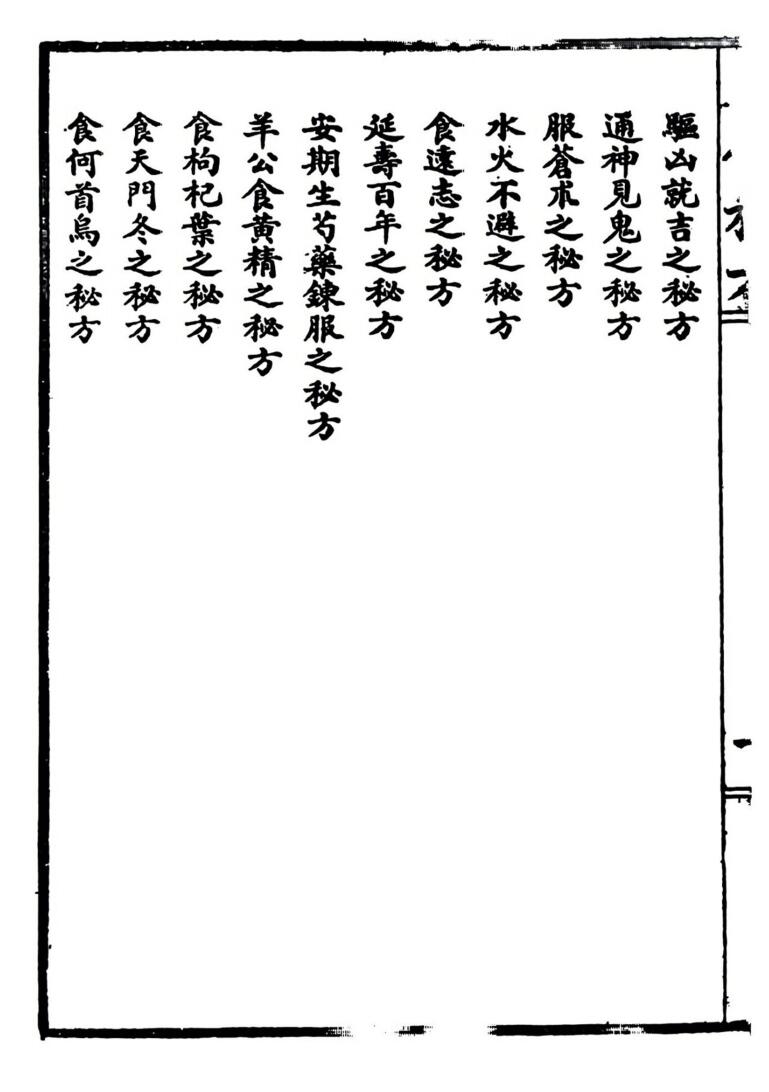 驅凶就吉之秘方
通神見鬼之秘方
服蒼朮之秘方
水火不避之秘方
食遠志之秘方
延壽百年之秘方
安期生芍藥錬服之秘方
羊公食黄精之秘方
食枸杞葉之秘方
食天門冬之秘方
食何首烏之秘方